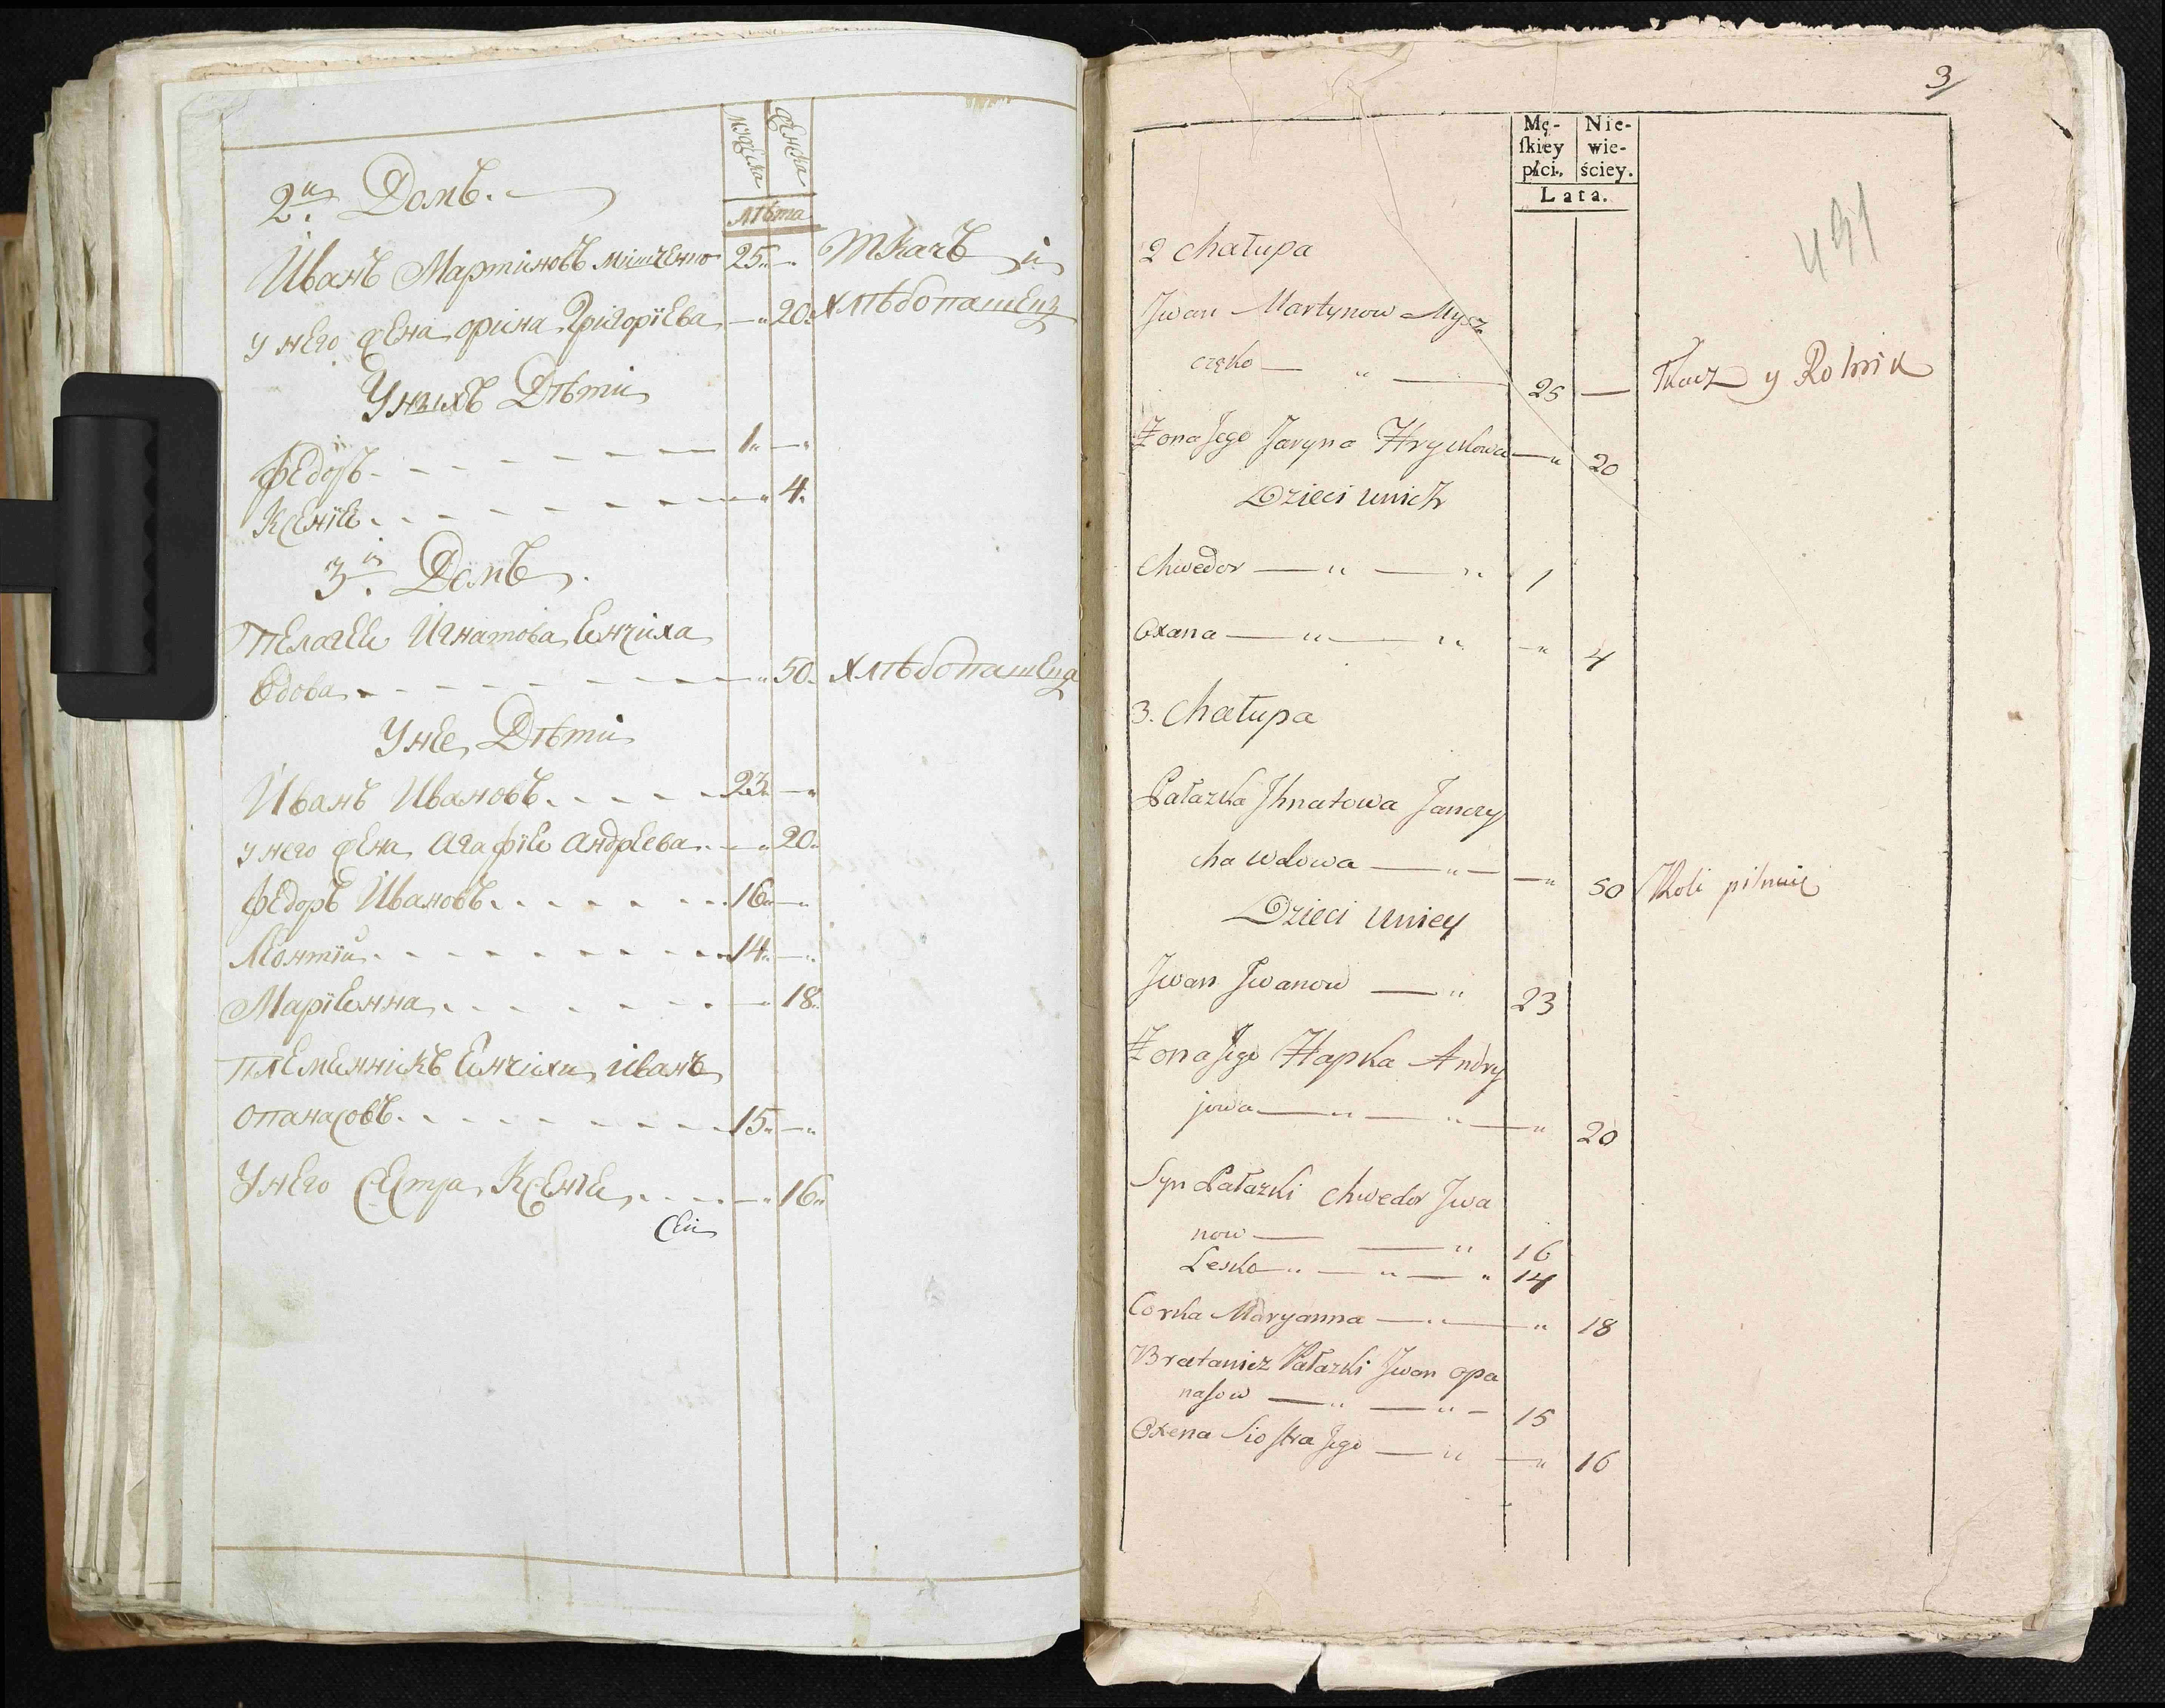 мужеска
женска
лѣта
2й Домъ.
Иванъ Мартиновъ Мишченко 25 Ткачъ и
у него жена орина Григорїева 20 хлѣбопашецъ
Унихъ Дѣти
Федоръ 1
Ксенїѣ 4
3й Домъ.
Пелагеѣ Игнатова Енчиха
вдова 50 хлѣбопашеца
У нее Дѣти
Иванъ Ивановъ 23
у него жена Агафїѣ Андреева 20
Федоръ Ивановъ 16
Леонтїй 14
Марїѣнна 18
племѣнникъ Енчихи иванъ
опанасовъ 15
У него Сестра Ксенїѣ 16
3
Mę-
ſkiey
płci.
Nie-
wie-
ściey.
Lata.
431
2 Chałupa
Jwan Martynow Mysz
częko 25 Tkacz y Rolnik
Żona Jego Jaryna Hryckowa 20
Dzieci unich
Chwedor 1
Oxana 4
3. Chałupa
Pałazka Jhnatowa Janczy
cha wdowa 50 Roli pilnuię
Dzieci Uniey
Jwan Jwanow 23
Żona Jego Hapka Andry
jowa 20
Syn Pałazki Chwedor Jwa
now 16
Lesko 14
Corka Maryanna 18
Bratanicz Pałazki Jwan opa
naſow 15
Oxena Sioſtra Jego 16